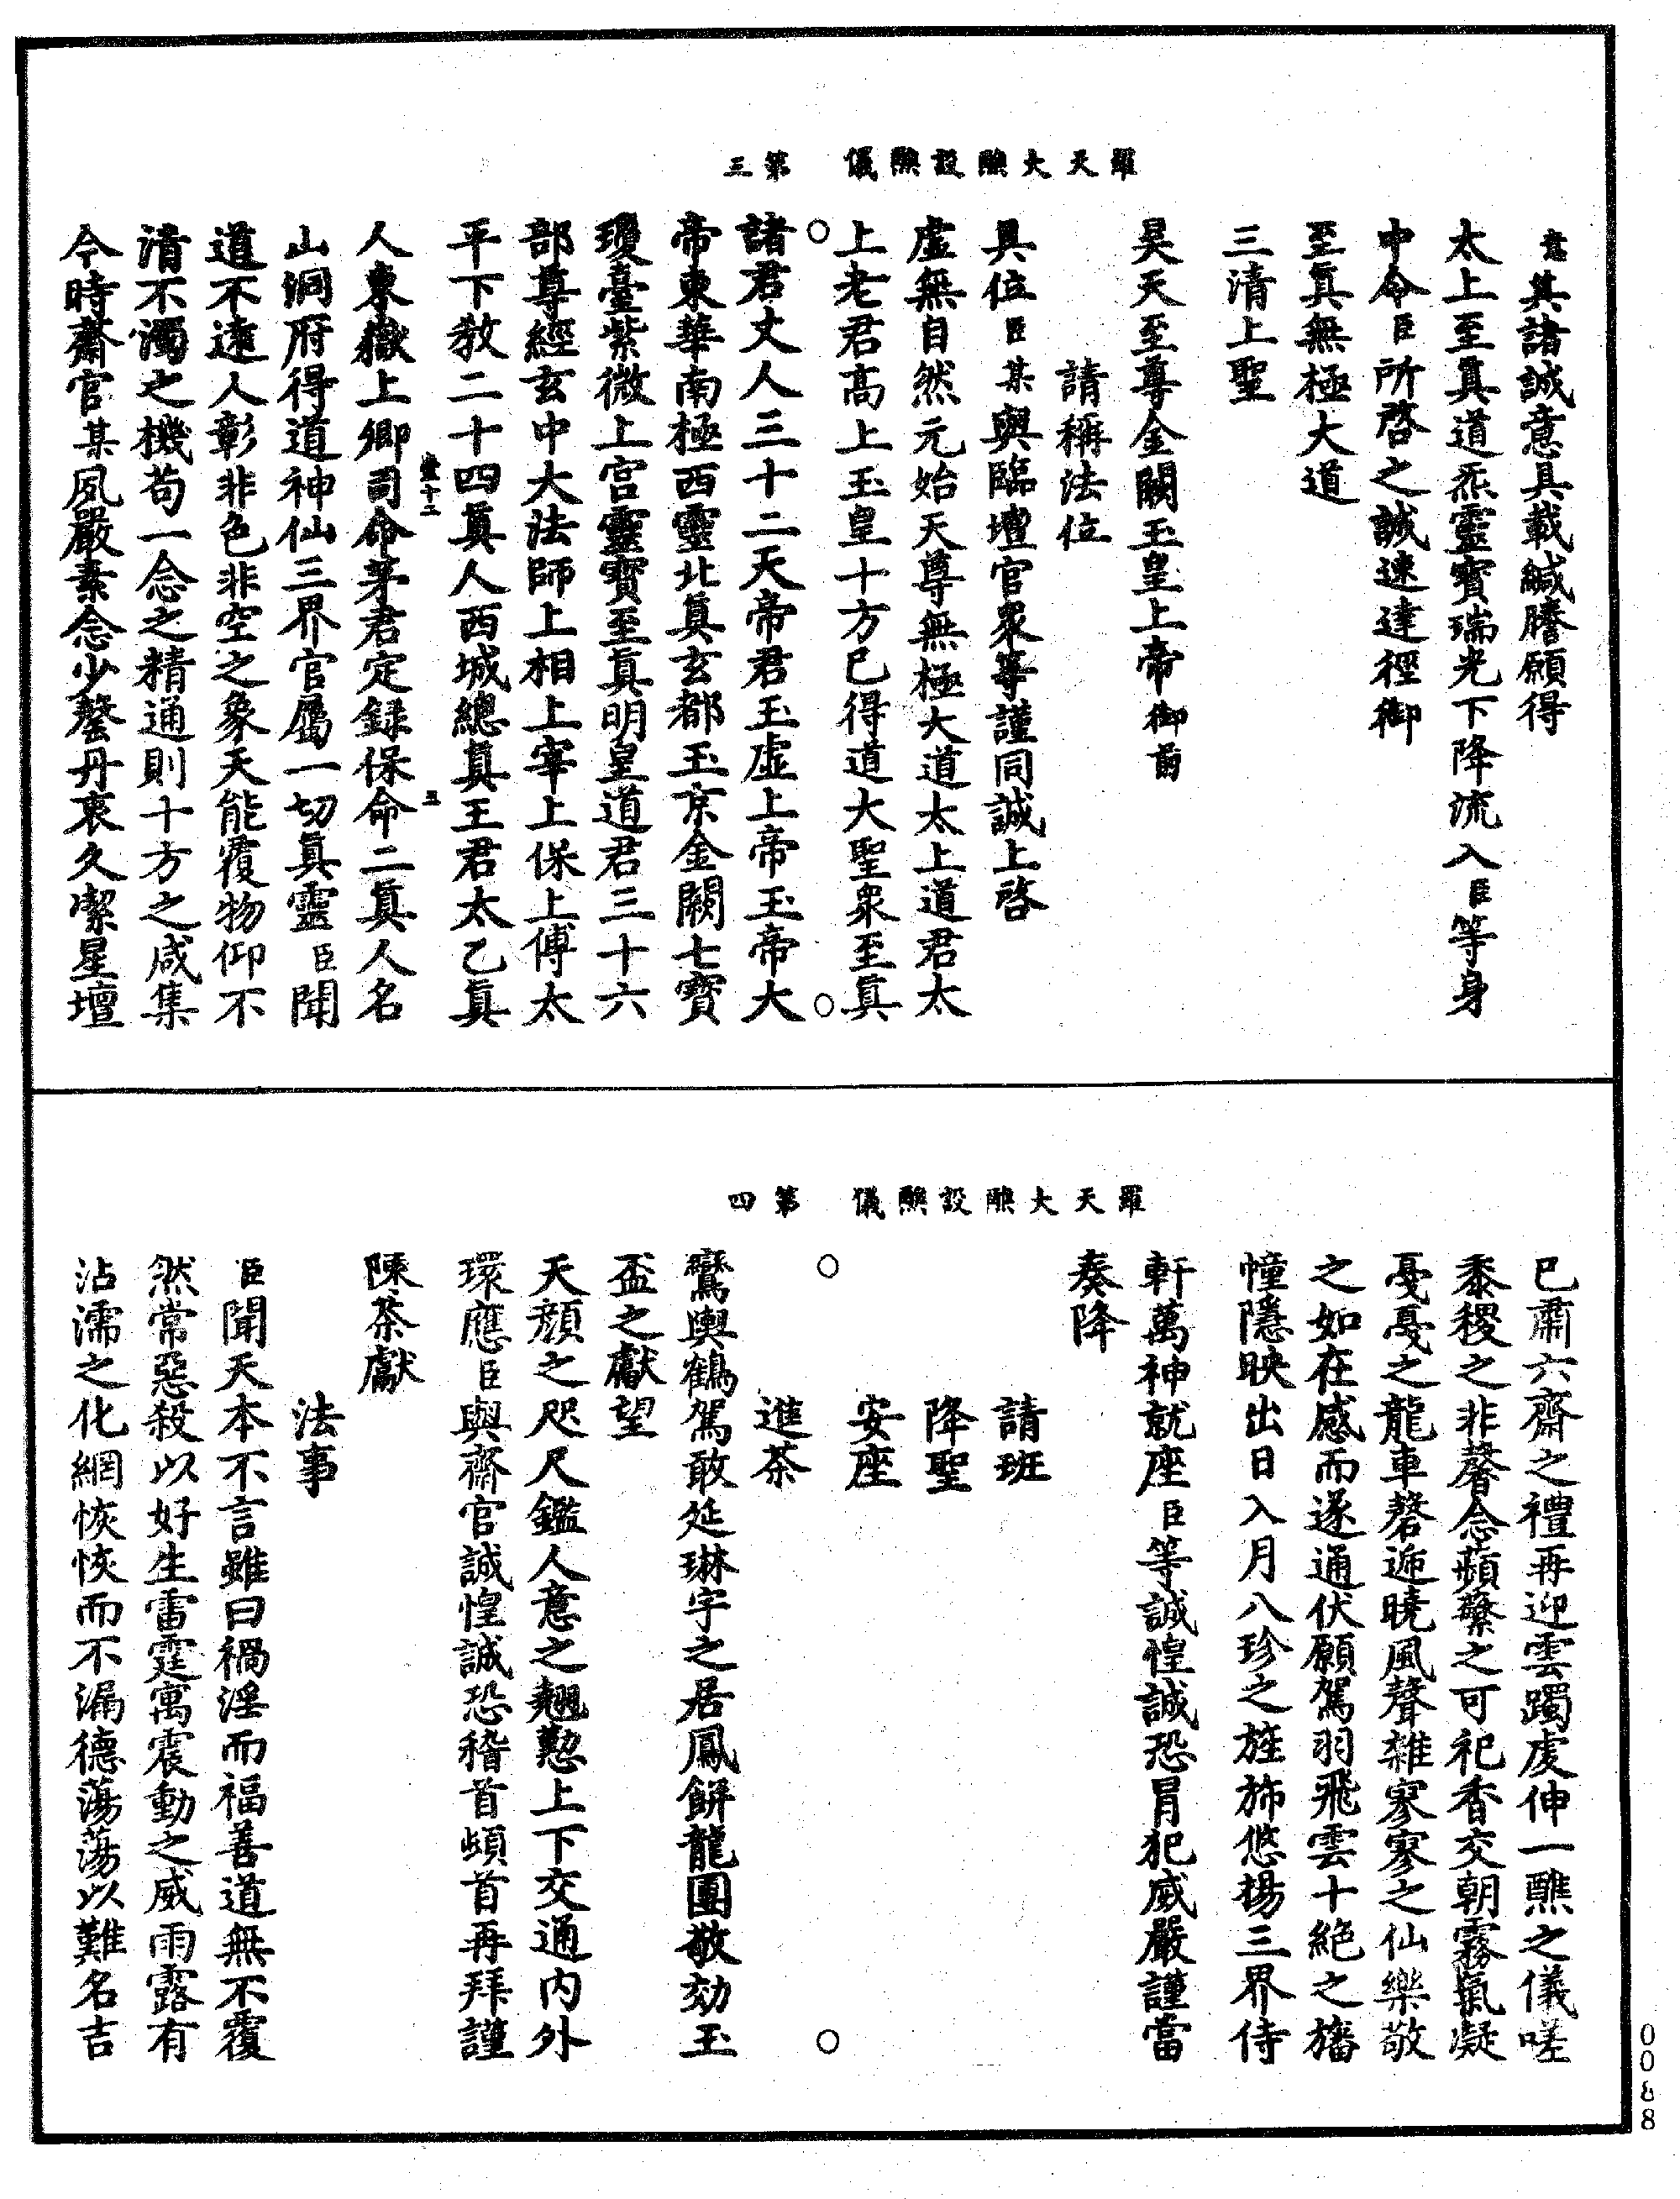 羅天大醮設醮儀 第三
意其諸誠意具載緘謄願得
太上至真道炁靈寶瑞光下降流入臣等身
中令臣所啓之誠速達徑御
至真無極大道
三清上聖
昊天至尊金闕玉皇上帝御前
請稱法位
具位臣某與臨壇官衆等謹同誠上啓
虛無自然元始天尊無極大道太上道君太
上老君高上玉皇十方已得道大聖衆至真
諸君丈人三十二天帝君玉虛上帝玉帝大
帝東華南極西靈北真玄都玉京金闕七寶
瓊臺紫微上宮靈寶至真明皇道君三十六
部尊經玄中大法師上相上宰上保上傅太
平下教二十四真人西城總真王君太乙真
壹十二 三
人東嶽上卿司命茅君定録保命二真人名
山洞府得道神仙三界官屬一切真靈臣聞
道不遠人彰非色非空之象天能覆物仰不
清不濁之機苟一念之精通則十方之咸集
今時齋官某夙嚴素念少罄丹衷久潔星壇
羅天大醮設醮儀 第四
已肅六齋之禮再迎雲躅虔伸一醮之儀嗟
黍稷之非馨念蘋蘩之可祀香交朝霧氣凝
戞戞之龍車磬逓曉風聲雜寥寥之仙樂敬
之如在感而遂通伏願駕羽飛雲十絕之旛
幢隱映出日入月八珍之旌斾悠揚三界侍
軒萬神就座臣等誠惶誠恐冒犯威嚴謹當
奏降
請班
降聖
安座
進茶
鸞輿鶴駕敢延琳宇之居鳳餅龍團敬効玉
盃之獻望
天顏之咫尺鑑人意之翹懃上下交通内外
環應臣與齋官誠惶誠恐稽首頓首再拜謹
陳茶獻
法事
臣聞天本不言雖曰禍淫而福善道無不覆
然常惡殺以好生雷霆寓震動之威雨露有
沾濡之化網恢恢而不漏德蕩蕩以難名吉
0088